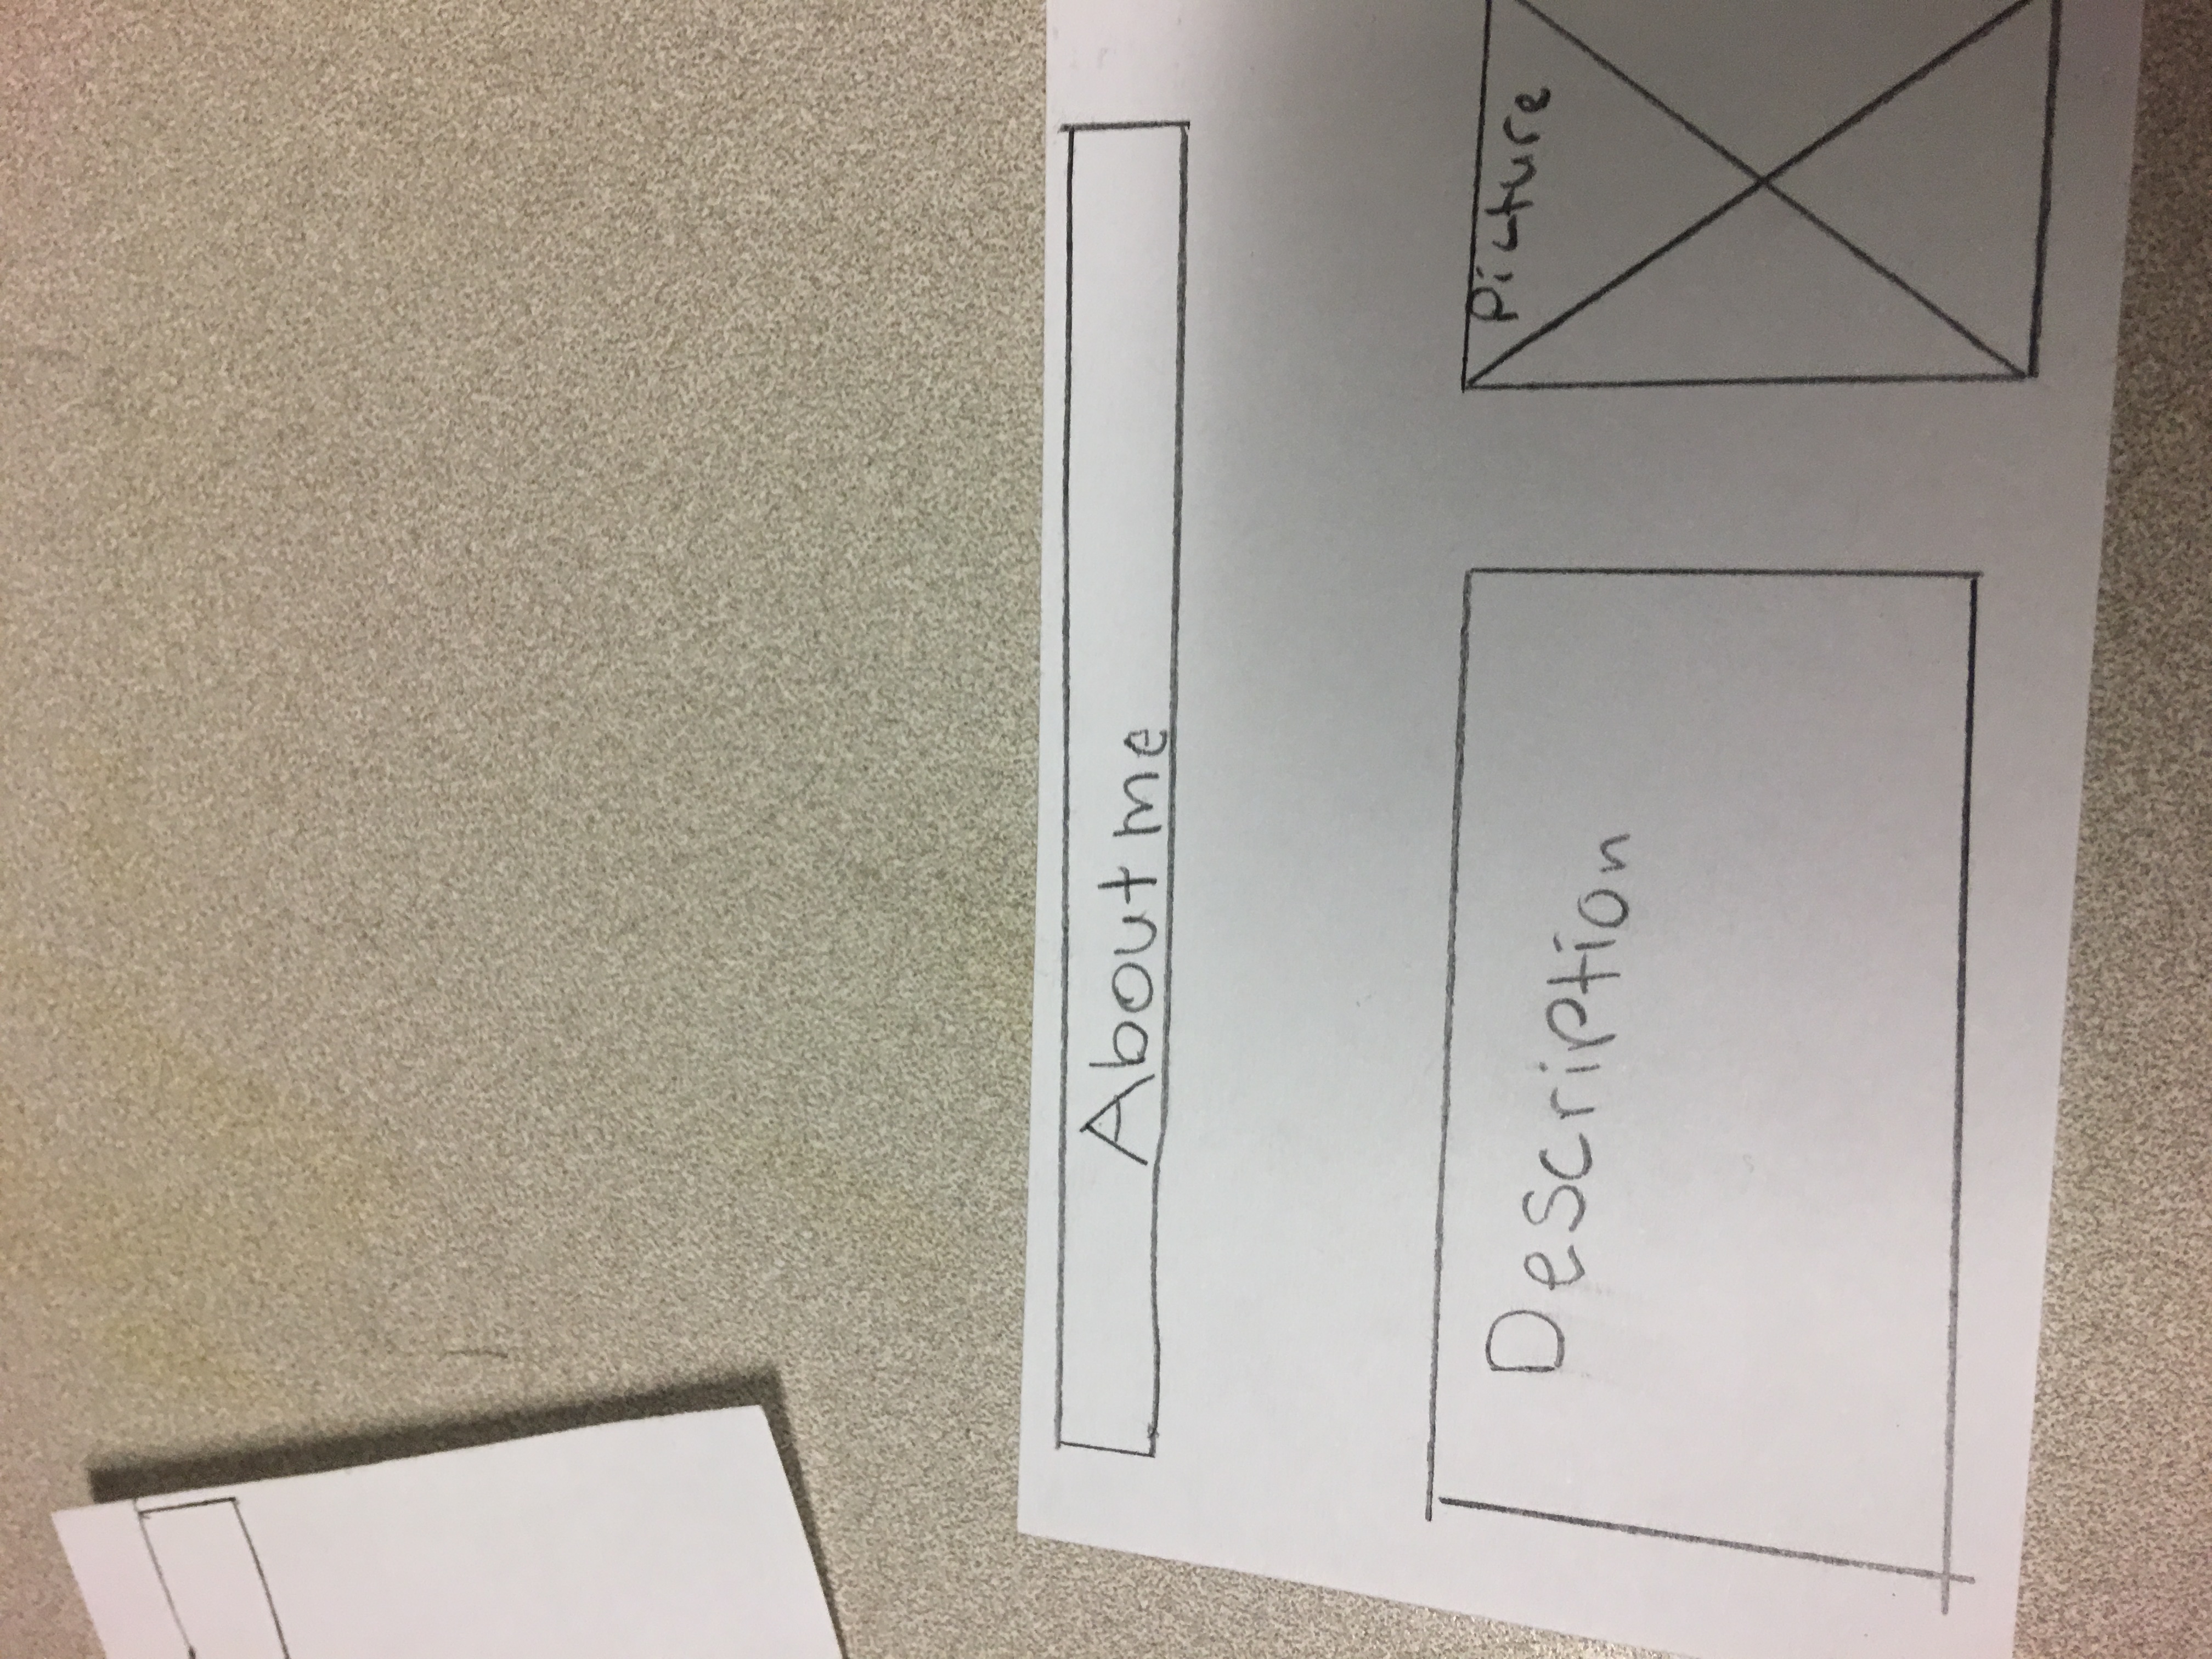 About me
Description
Picture